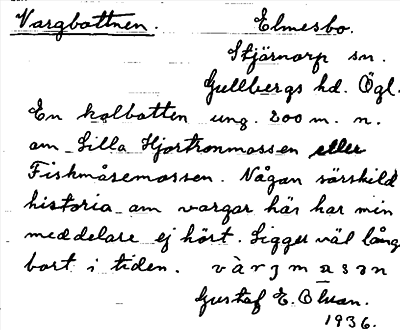 Vargbottnen. Elmesbo.
Stjärnorp sn.
Gullbergs hd. Ögl.
En kolbotten ung. 200 m. n.
om Lilla Hjortronmossen eller
Fiskmåsemossen. Någon särskild
historia om vargar här har min
meddelare ej hört. Ligger väl lång
bort i tiden.
Gustaf E. Olsson.
1936.